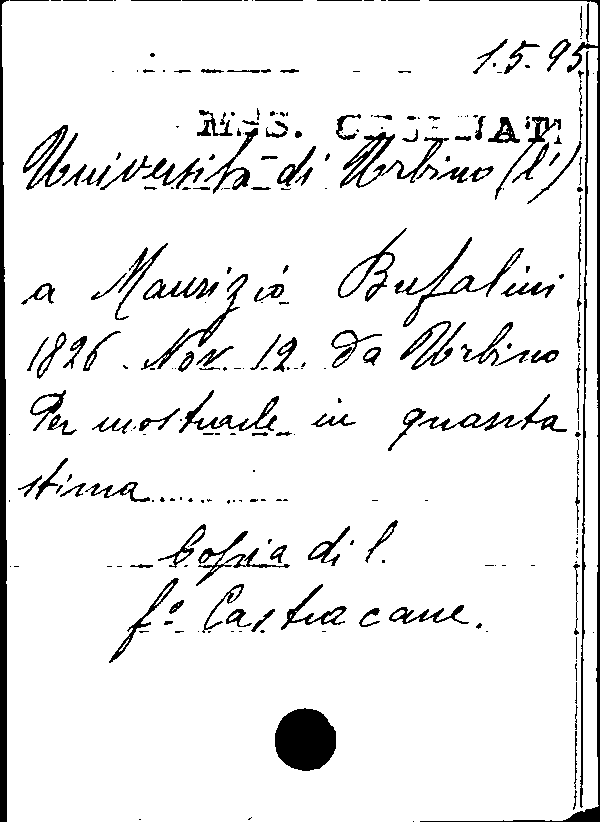 1.5.95
MSS. CESENATI
Università di Urbino (l')
a Maurizio Bufalini
1826 Nov. 12. Da Urbino
Per mostrarle in quanta
stima
Copia di l.
fº Castracane.